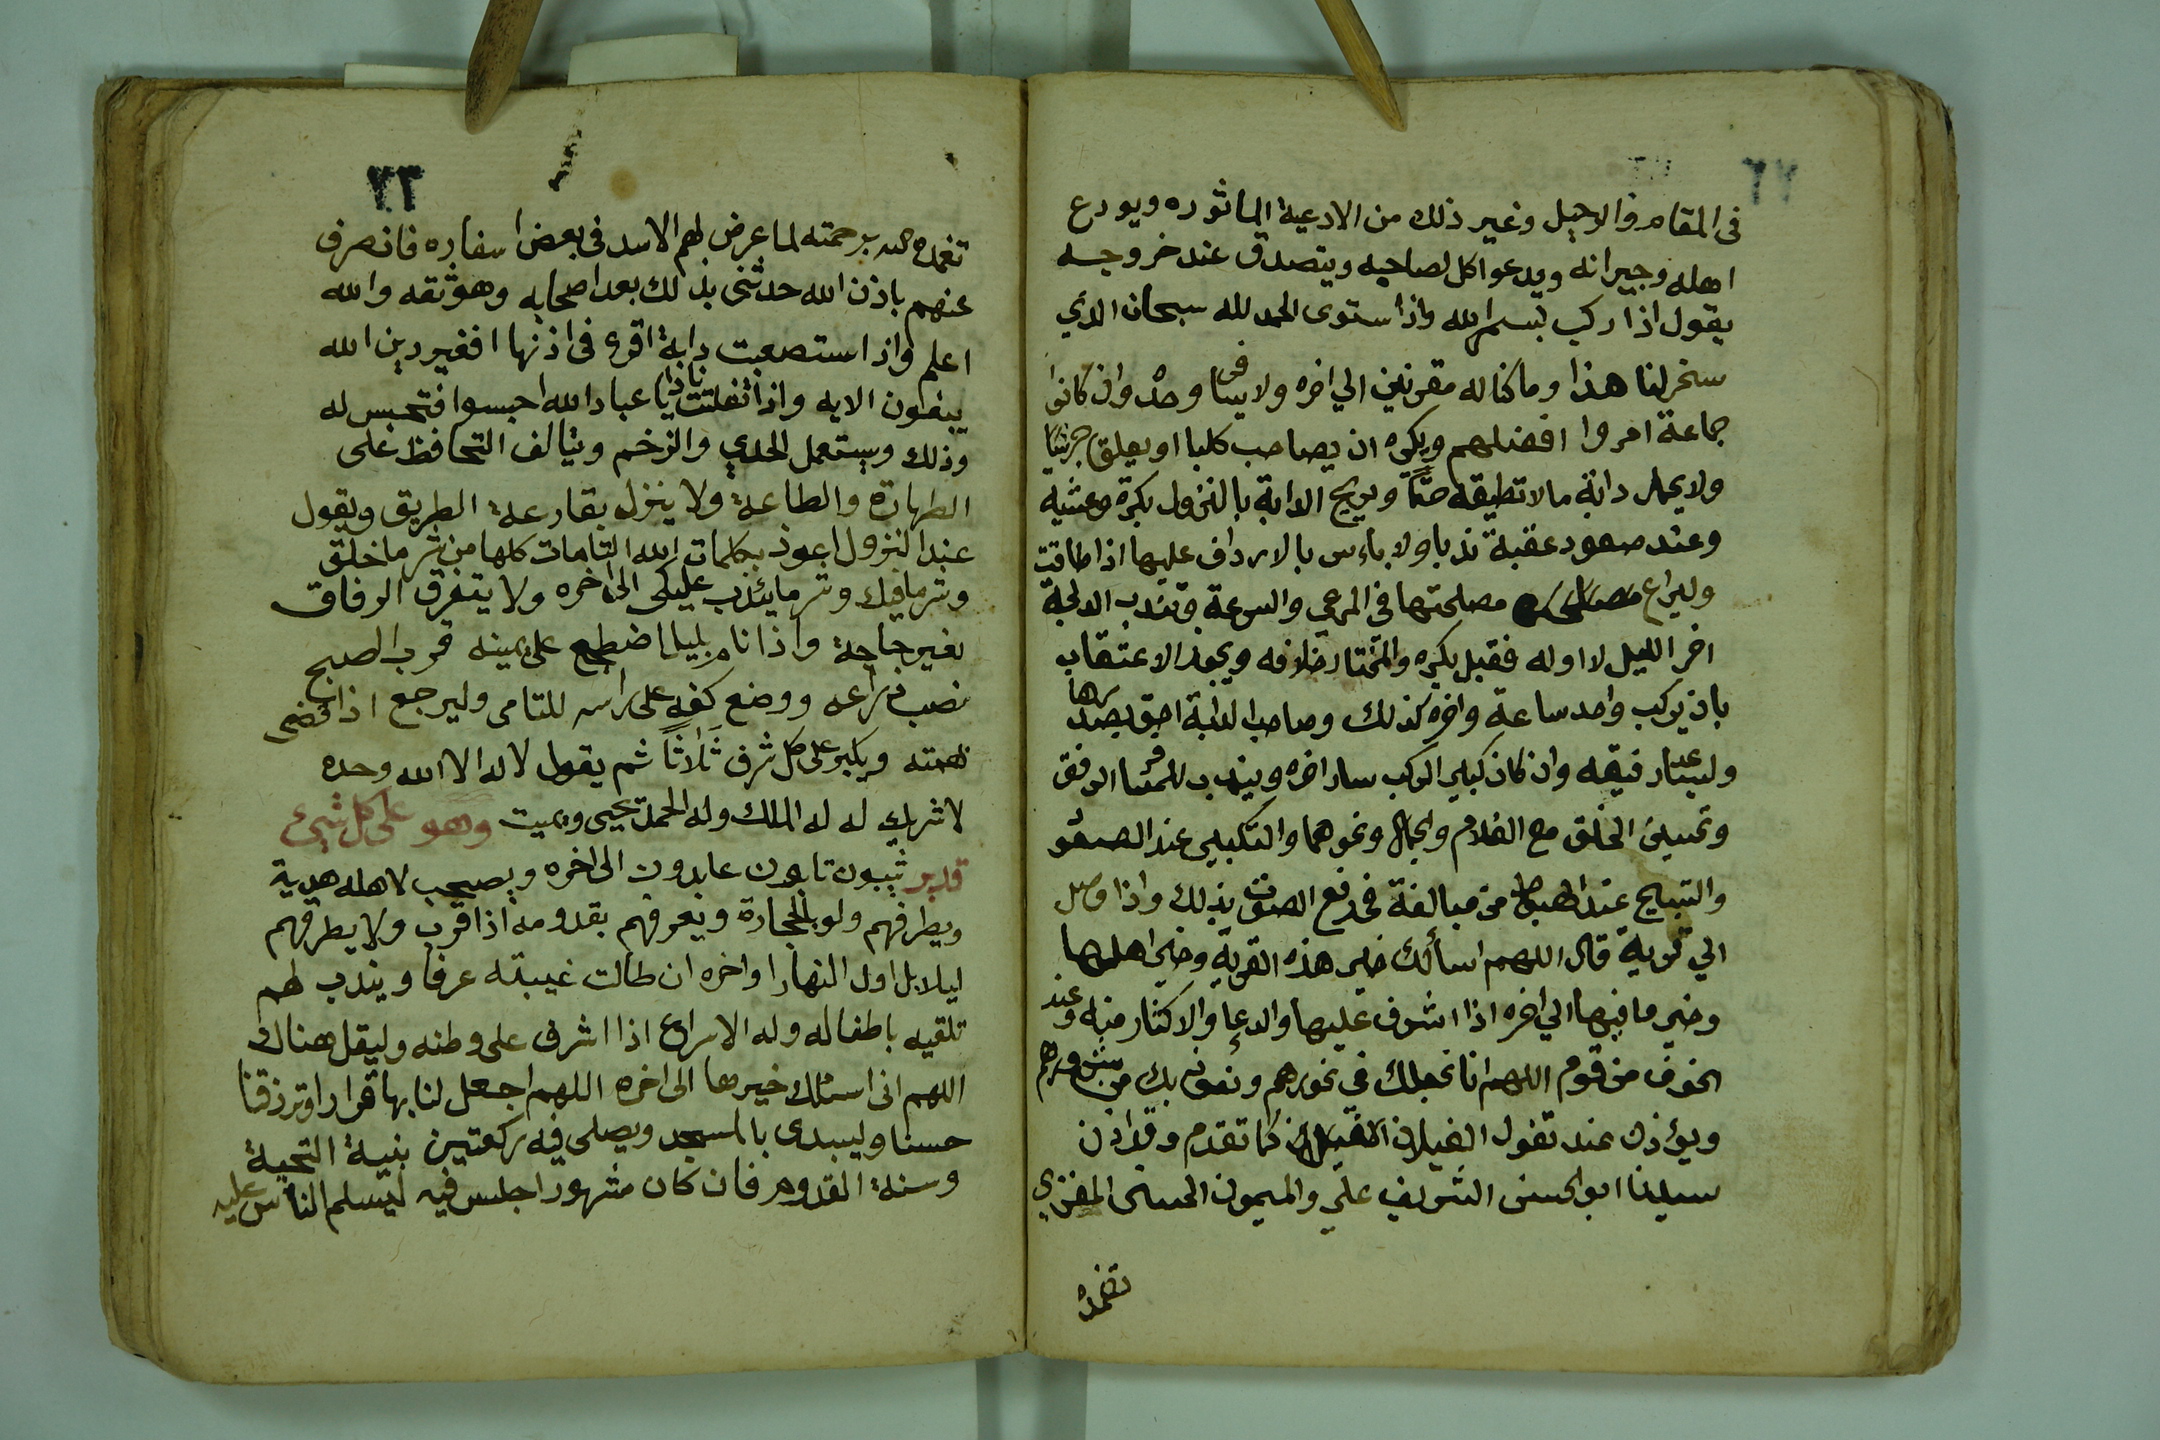 في المقام والرحيل وغير ذلك من الادعية الماثوره ويودع
اهله وجيرانه ويدعوا كل لصاحبه ويتصدق عند خروجه
يقول اذا ركب بسم الله واذا ستوى الحمد لله سبحان الذي
سخر لنا هذا وما كنا له مقرنين الي اخره ولا يسافر وحده وان كانوا
جماعة امروا افضلهم ويكره ان يصاحب كلبا او يعلق جرسا
ولا يحمل دابة مالا تطيقه حتما ويريح الدابة بالنزول بكرة وعشية
وعند صعود عقبة ندبا ولا باءس بالارداف عليها اذا طاقت
وليراع مصلحتها في المرعي والسرعة وتندب الدلجة
اخر الليل لا اوله فقيل يكره والمختار خلافه ويجوز الاعتقاب
بان يركب واحد ساعة واخره كذلك وصاحب الدابة احق بصدرها
رفيقه وان كان كبير الركب سار اخره ويندب للمسافر الرفق
وتحسين الخلق مع الغلام والجمال ونحوهما والتكبير عند الصعود
والتسبيح عند الهبوط من مبالغة في رفع الصوت بذلك واذا وصل
الي قرية قال اللهم اسألك خير هذه القرية وخير اهلها
وخير ما فيها الي اخره اذا اشرف عليها والدعا والاكثار منه وعند
الخوف من قوم اللهم انا نجعلك في نحورهم ونعوذ بك من شرورهم
ويؤذن عند تغول الغيلان كما تقدم وقد اذن
سيدنا ابو الحسن الشريف علي والميمون الحسنى المغزي
تغمده
٧٣
تغمده الله برحمته لما عرض لهم الاسد في بعض اسفاره فانصرف
عنهم باذن الله حدثنى بذلك بعد اصحابه وهو ثقه والله
اعلم واذا استصعبت دابة اقرء في اذنها افغير دين الله
يبغون الايه واذا نفلتت نادا يا عباد الله احبسوا فتحبس له
وذلك ويستعمل الحدي والزخم ويتالف التحافظ على
الطهارة والطاعة ولا ينزل بقارعة الطريق ويقول
عند النزول اعوذ بكلمات الله التامات كلها من شر ما خلق
وشر ما فيك وشر ما يندب عليكى الى اخره ولا يتفرق الرفاق
لغير حاجة واذا نام بليل اضطجع على يمينه قرب الصبح
نصب ذراعه ووضع كفه على راسه للتامى وليرجع اذا قضى
نهمته ويكبر على كل شرف ثَلاثًا ثم يقول لا اله الا الله وحده
لا شريك له له الملك وله الحمد يحيى ويميت وهو على كل شيئ
قدير ئيبون تايبون عابدون الى اخره ويصحب لاهله هدية
ويطرفهم ولو بالحجارة ويعرفهم بقدومه اذا قرب ولا يطرقهم
ليلا بل اول النهار او اخره ان طالت غيبته عرفا ويندب لهم
تلقيه باطفاله وله الاسراع اذا اشرف على وطنه وليقل هناك
اللهم انى اسئلك خيرها الى اخره اللهم اجعل لنا بها قرارا وترزقنا
حسنا وليبدى بالمسجد ويصلى فيه ركعتين بنية التحية
وسنة القدوم فان كان مشهورا جلس فيه ليسلم الناس عليه